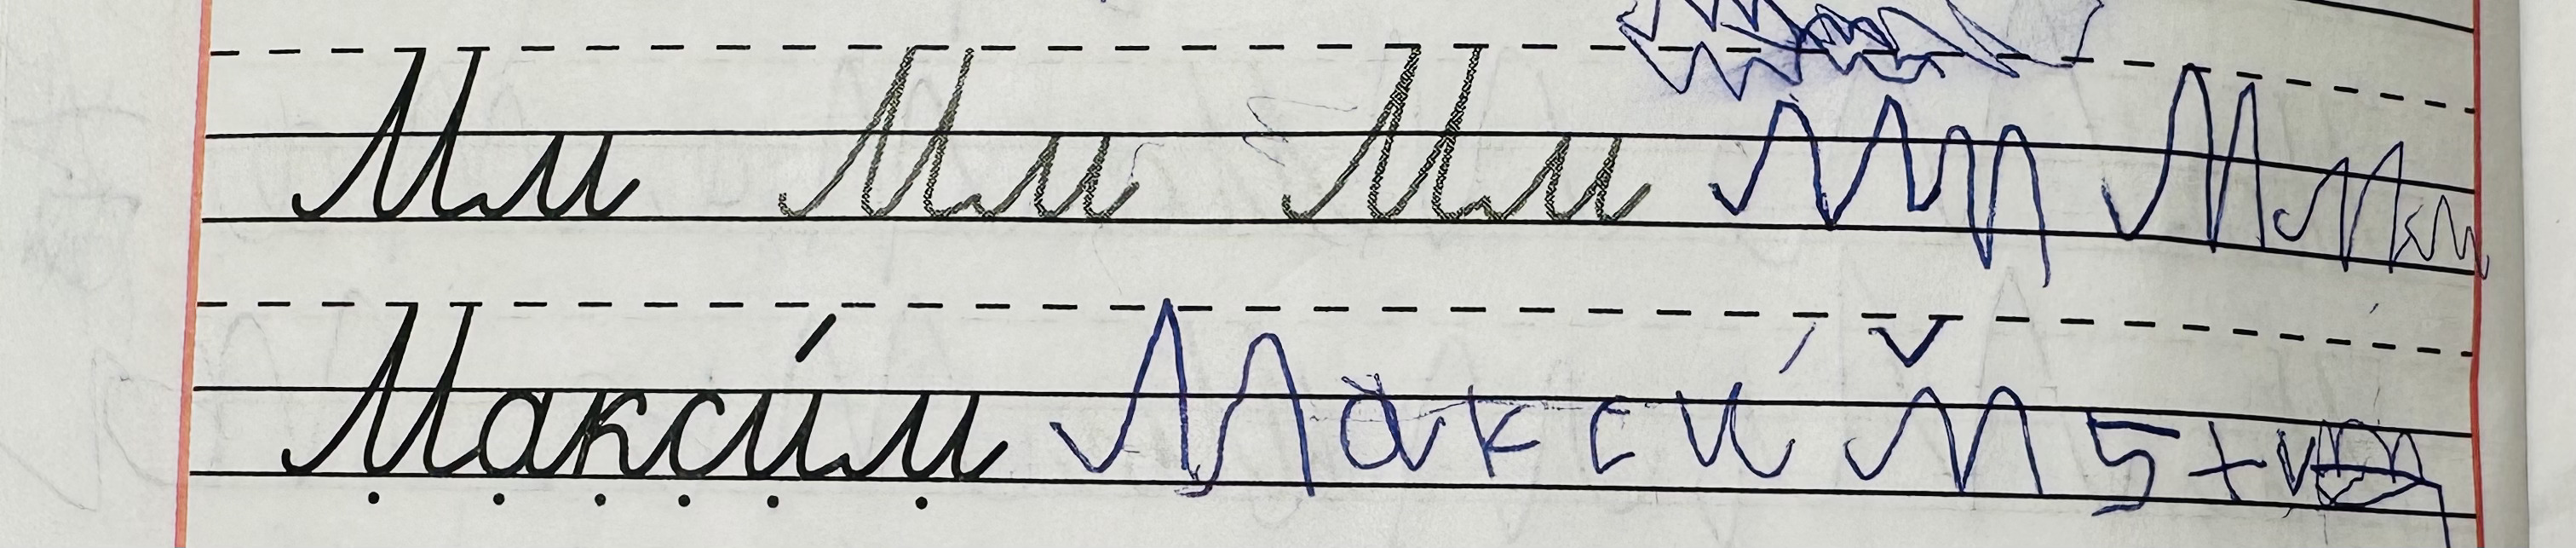 Мм Мм Мм Мм Мм
Макси́м Макси́м 5+